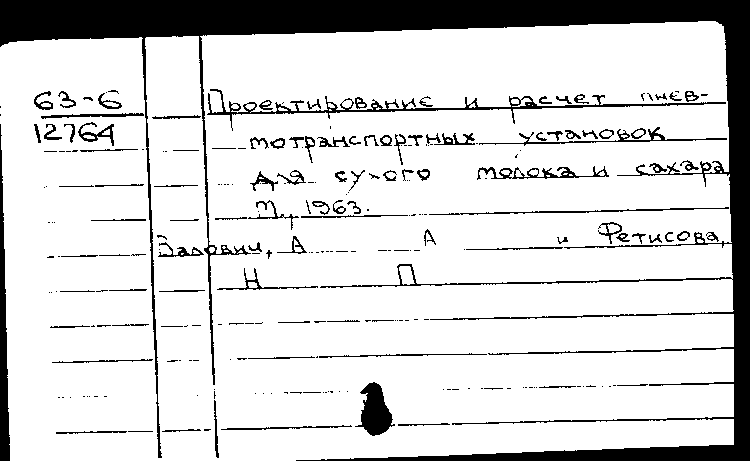 63-6
12764
Проектирование и расчет пнев-
мотранспортных установок
для сухого молока и сахара
М., 1963.
Залович, А А и Фетисова,
Н П